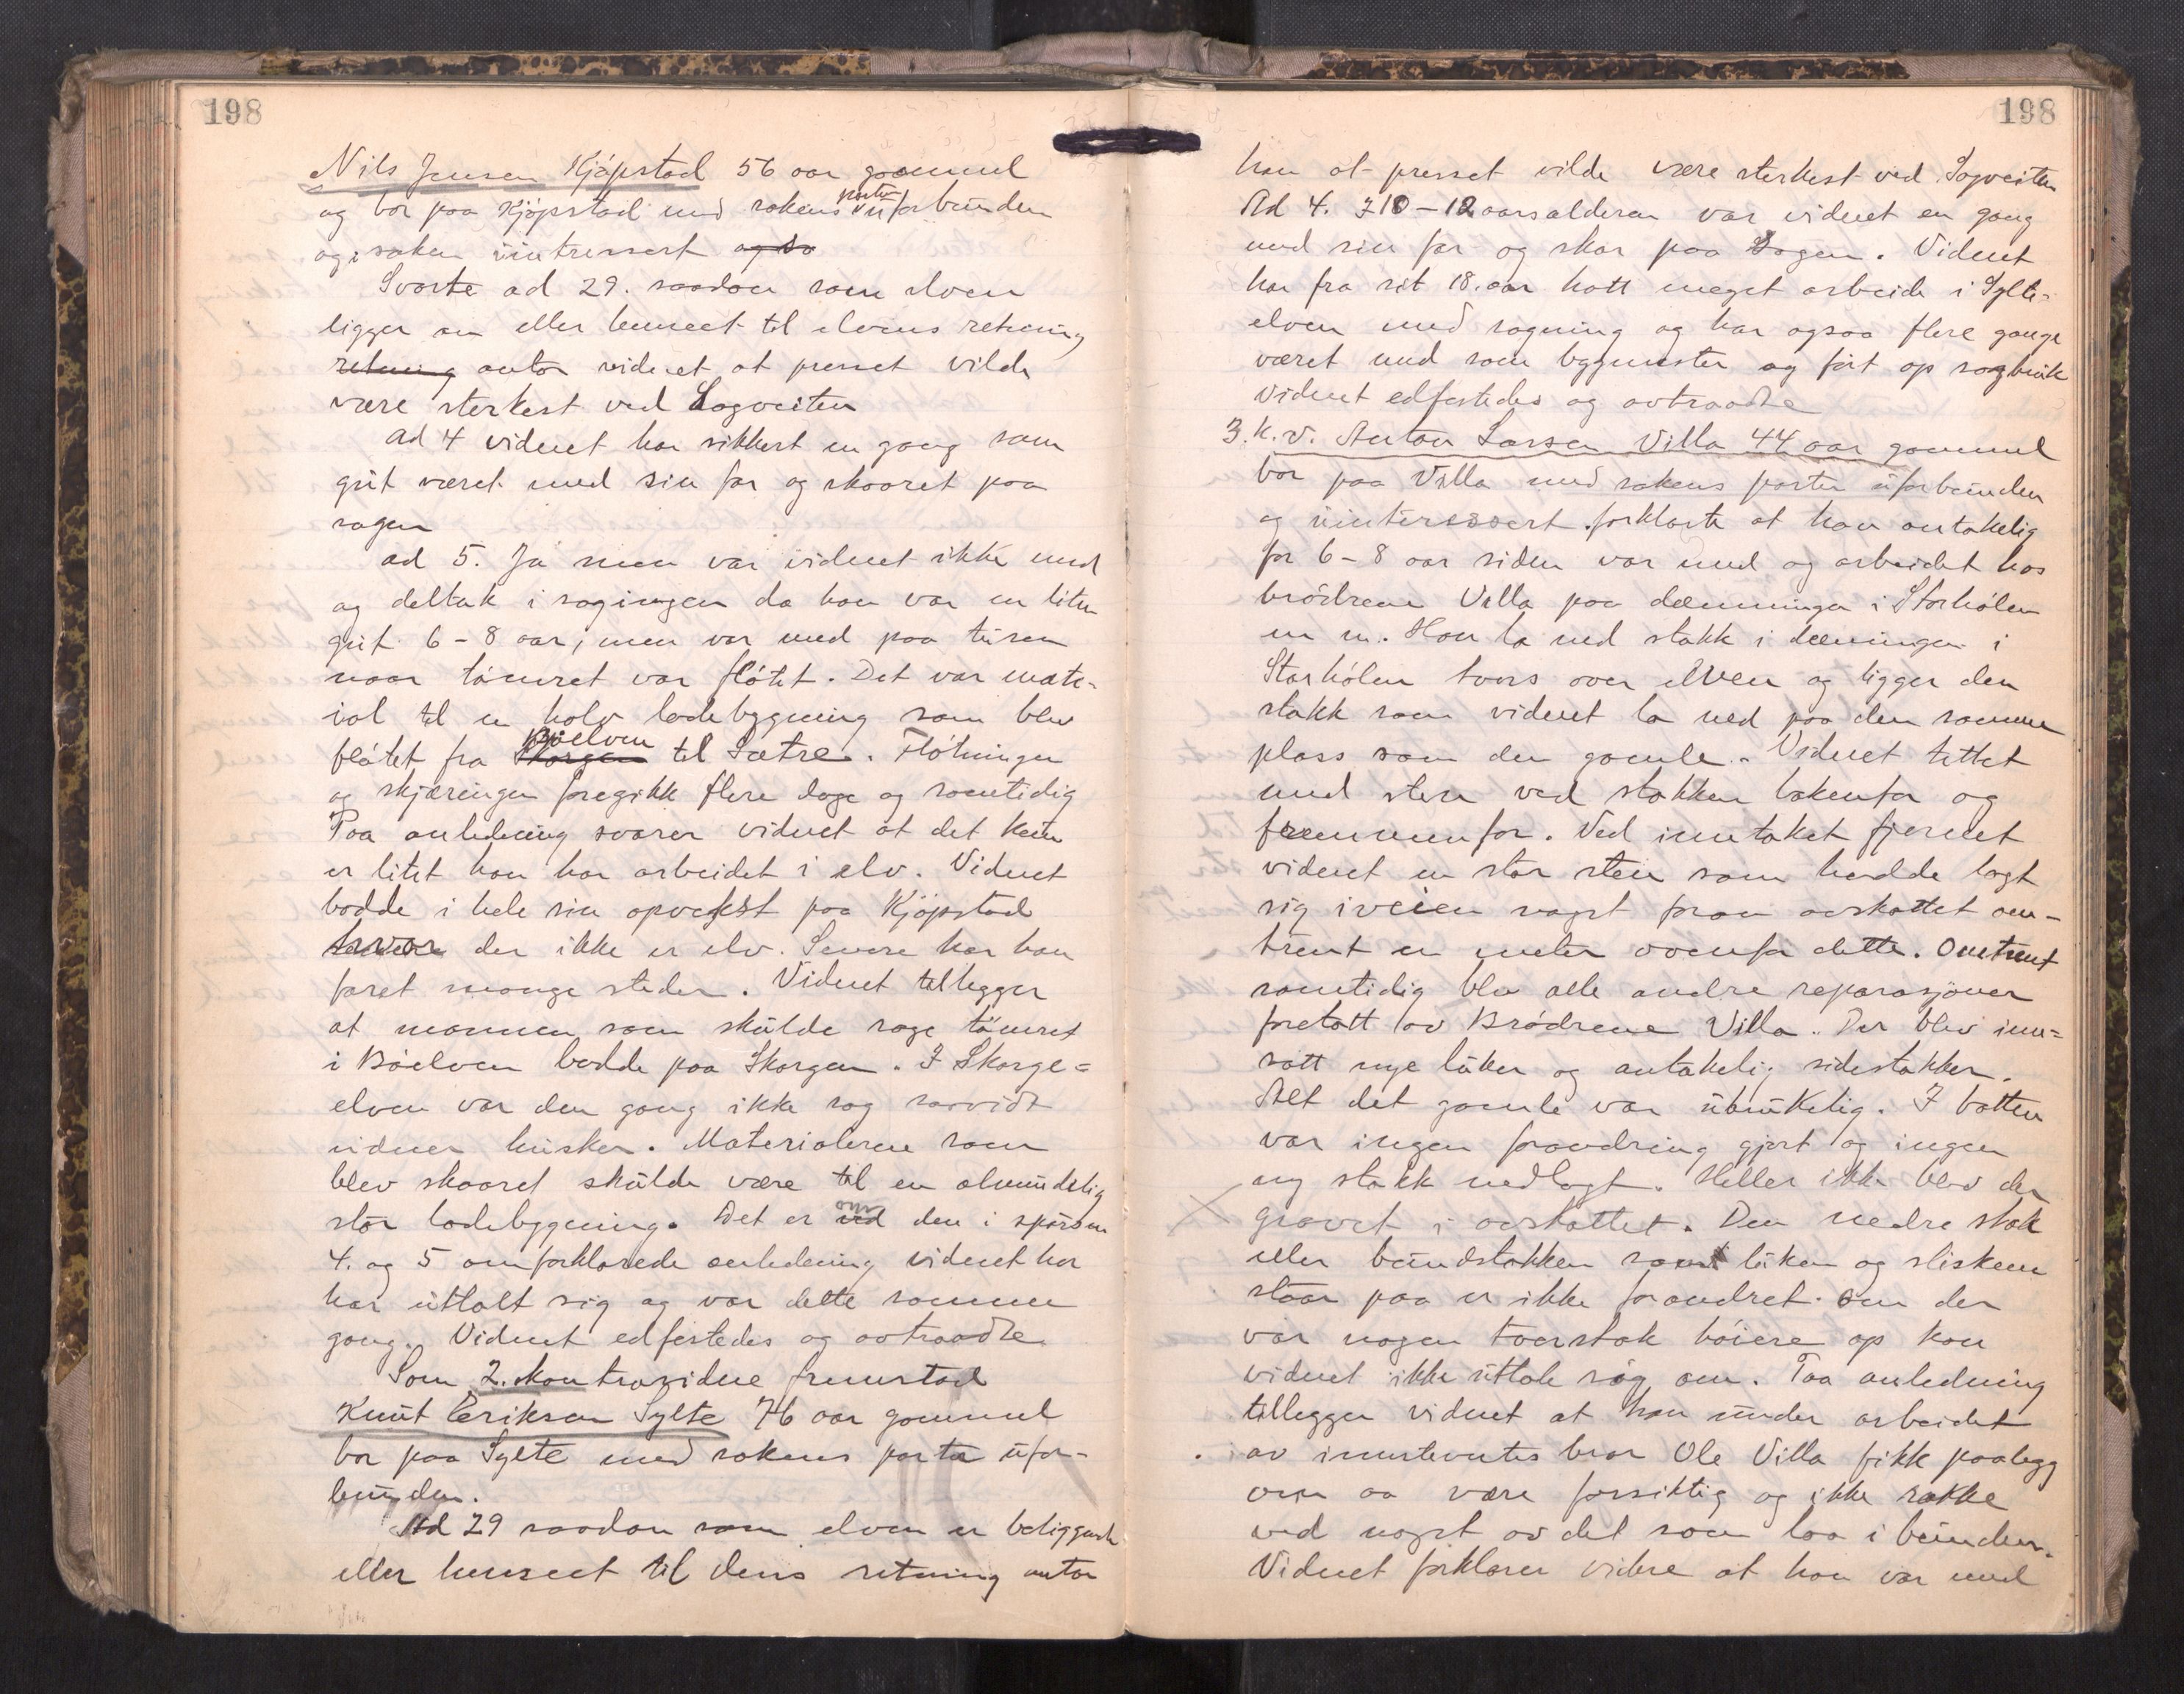 198
Nils Jensen Kjøpstad 56 aar gammel
og bor paa Kjøpstad med sakens parter uforbunden
og i saken uintressert og so
Svarte ad 29. saadan som elven
ligger an eller henseet til elvens retning
retning antar vidnet at presset vilde
være sterkest ved Sagveiten
ad 4 vidnet har sikkert en gang som
gut været med sin far og skaaret paa
sagen
ad 5. Ja men var vidnet ikke med
og deltak i sagingen da han var en liten
gut 6-8 aar, men var med paa turen
naar tømret var fløtet. Det var mate-
ial til en halv ladebygning som blev
fløtet fra Skorgen Bøelven til Sætre. Fløtningen
og skjæringen foregikk flere dage og samtidig
Paa anledning svarer vidnet at det kun
er litet han har arbeidet i elv. Vidnet
bodde i hele sin opvekst paa Kjøpstad
hvor der ikke er elv. Senere har han
faret mange steder. Vidnet tillegger
at mannen som skulde sage tømret
i Bøelven bodde paa Skorgen. I Skorge=
elven var den gang ikke sag saavidt
vidnet husker. Materialerne som
blev skaaret skulde være til en almindelig
stor ladebygning. Det er ved om den i spørsm
4. og 5 omforklarede anledning vidnet her
har uttalt sig og var dette samme
gang. Vidnet edfestedes og avtraadte
Som 2. kontravidne fremstod
Knut Eriksen Sylte 76 aar gammel
bor paa Sylte med sakens parter ufor-
bunden.
Ad 29 saadan som elven er beliggende
eller henseet til dens retning antar
198
han at presset vilde være sterkest ved Sagveiten
Ad 4. I 10-12 aarsalderen var vidnet en gang
med sin far og skar paa Sagen. Vidnet
har fra sit 18. aar hatt meget arbeide i Sylte-
elven med sagning og har ogsaa flere gange
været med som bygmester og ført op sagbruk
Vidnet edfestedes og avtraadte
3. k.v. Anton Larsen Villa 44 aar gammel
bor paa Villa med sakens parter uforbunden
og uinteressert forklarte at han antakelig
for 6-8 aar siden var med og arbeidet hos
brødrene Villa paa dæmninger i Storhølen
m m. Han la ned stokk i dæmningen i
Storhølen tvers over elven og ligger den
stokk som vidnet la ned paa den samme
plass som den gamle. Vidnet tettet
med sten ved stokken bakenfor og
fremmenfor. Ved inntaket fjernet
vidnet en stor sten som hadde lagt
sig i veien noget foran avskottet om-
trent en meter ovenfor dette. Omtrent
samtidig blev alle andre reparasjoner
foretatt av Brødrene Villa. Der blev inn=
satt nye luker og antakelig sidestokker.
Alt det gamle var ubrukelig. I botten
var ingen forandring gjort og ingen
ny stokk nedlagt. Heller ikke blev der
gravet i avskottet. Den nedre stok
eller bundstokken som luken og slisken
staar paa er ikke forandret. Om der
var nogen tverstok høiere op kan
vidnet ikke uttale sig om. Paa anledning
tillegger vidnet at han under arbeidet
av innstevntes bror Ole Villa fikk paalegg
om aa være forsiktig og ikke røkke
ved noget av det som laa i bunden.
Vidnet forklarer videre at han var med